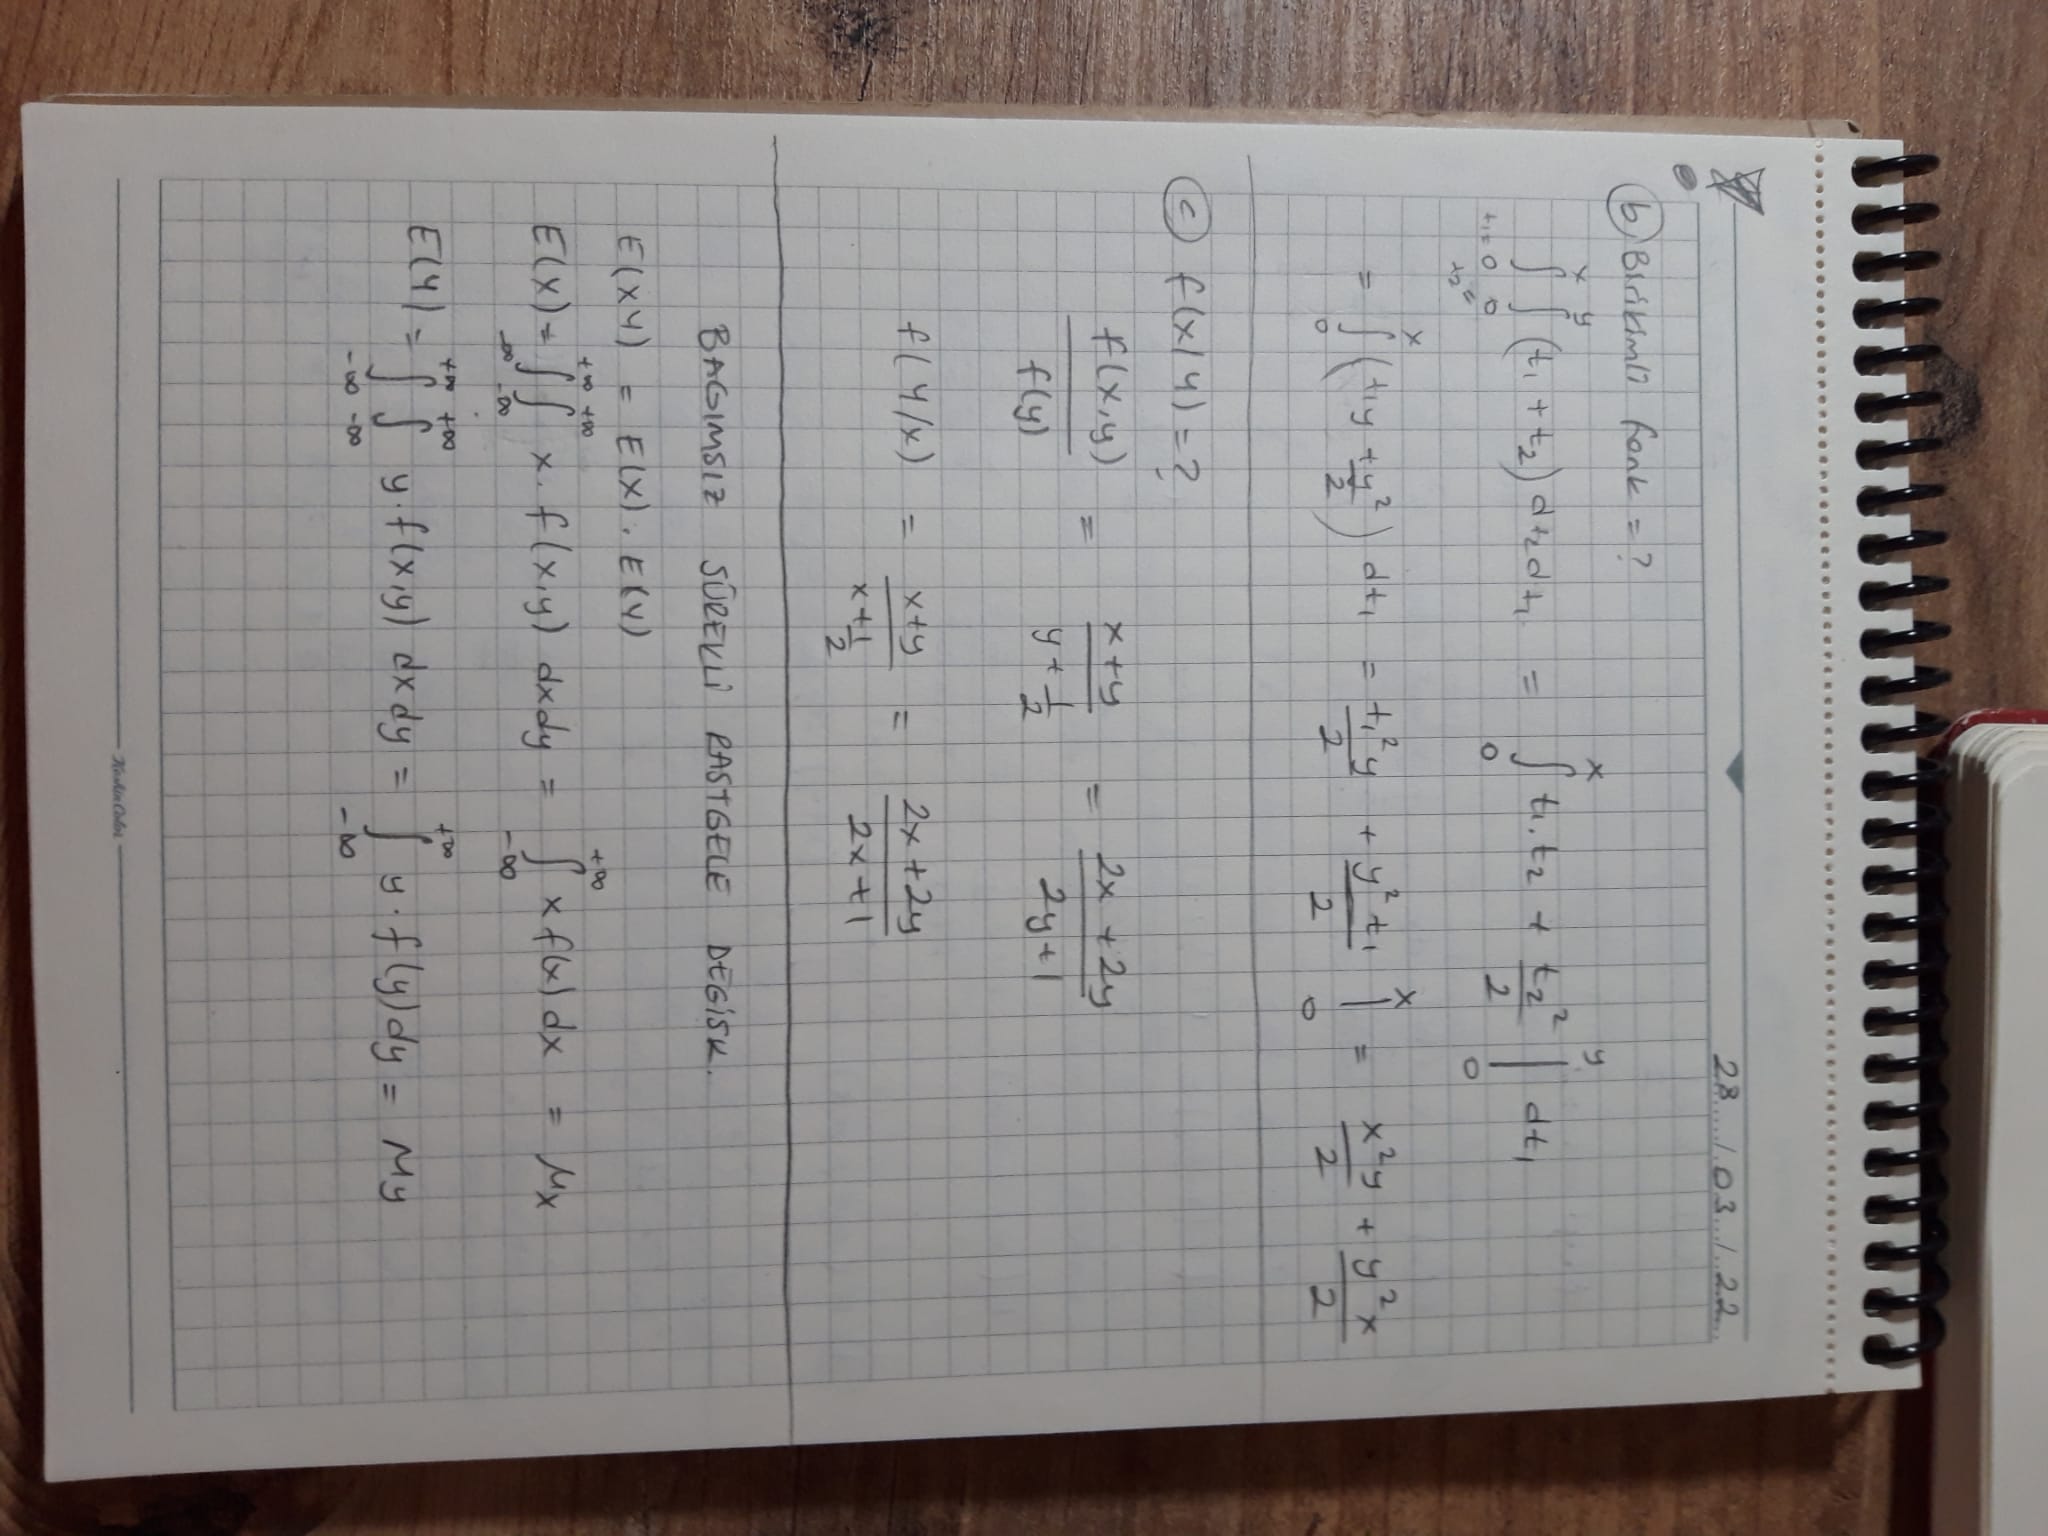 28 / 03 / 22
b) Birikimli fonk = ?
∫_{t₁=0}^{x} ∫_{t₂=0}^{y} (t₁ + t₂) dt₂dt₁ = ∫_0^x t₁.t₂ + t₂²/2 |_0^y dt₁
= ∫_0^x (t₁y + y²/2) dt₁ = t₁²y/2 + y²t₁/2 |_0^x = x²y/2 + y²x/2
c) f(x/y) = ?
f(x,y)/f(y) = (x+y)/(y+1/2) = (2x+2y)/(2y+1)
f(y/x) = (x+y)/(x+1/2) = (2x+2y)/(2x+1)
BAGIMSIZ SÜREKLİ RASTGELE DEĞİŞK.
E(xy) = E(x). E(y)
E(x) = ∫_{-∞}^{+∞} ∫_{-∞}^{+∞} x. f(x,y) dxdy = ∫_{-∞}^{+∞} x f(x) dx = μx
E(y) = ∫_{-∞}^{+∞} ∫_{-∞}^{+∞} y. f(x,y) dxdy = ∫_{-∞}^{+∞} y. f(y) dy = μy